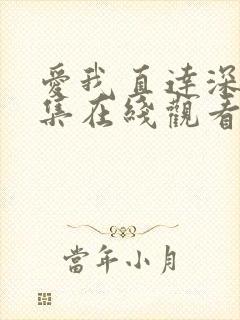 愛我直達深
集在綫觀看
當年小月